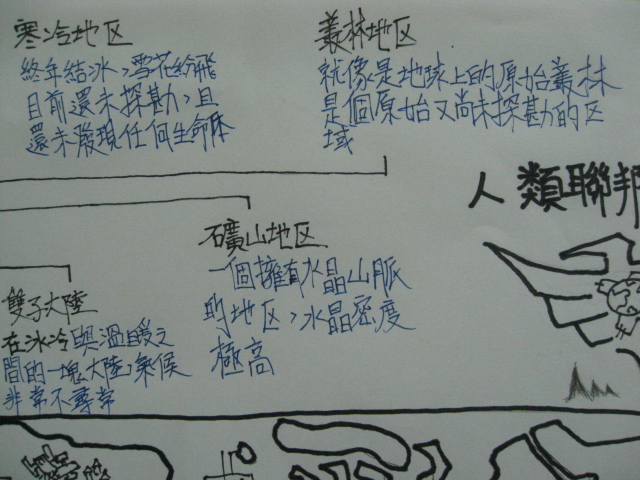 寒冷地区
終年結冰，雪花紛飛
目前還未探勘，且
還未發現任何生命体
叢林地区
就像是地球上的原始叢林
是個原始又尚未探勘的区
域
人類聯邦
礦山地区
一個擁有水晶山脈
的地区，水晶密度
極高
雙子大陸
在冰冷與溫暖之
間的一塊大陸，氣候
非常不尋常